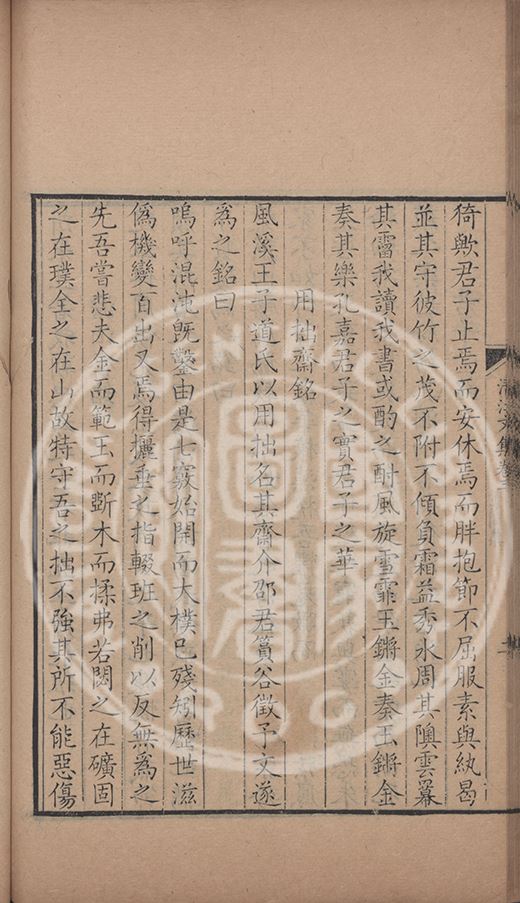 猗歟君子止焉而安休焉而胖抱節不屈服素與紈曷
並其守彼竹之茂不附不傾負霜益秀水周其隩雲冪
其霤我讀我書或酌之酎風旋雪霏玉鏘金奏玉鏘金
奏其樂孔嘉君子之實君子之華
用拙齋銘
風溪王子道氏以用拙名其齋介邵君篔谷徵予文遂
為之銘曰
嗚呼混沌既鑿由是七竅始開而大樸已殘矧歷世滋
偽機變百出又焉得攦垂之指輟班之削以反無為之
先吾嘗悲夫金而範玉而斲木而揉弗若閟之在礦固
之在璞全之在山故特守吾之拙不強其所不能惡傷